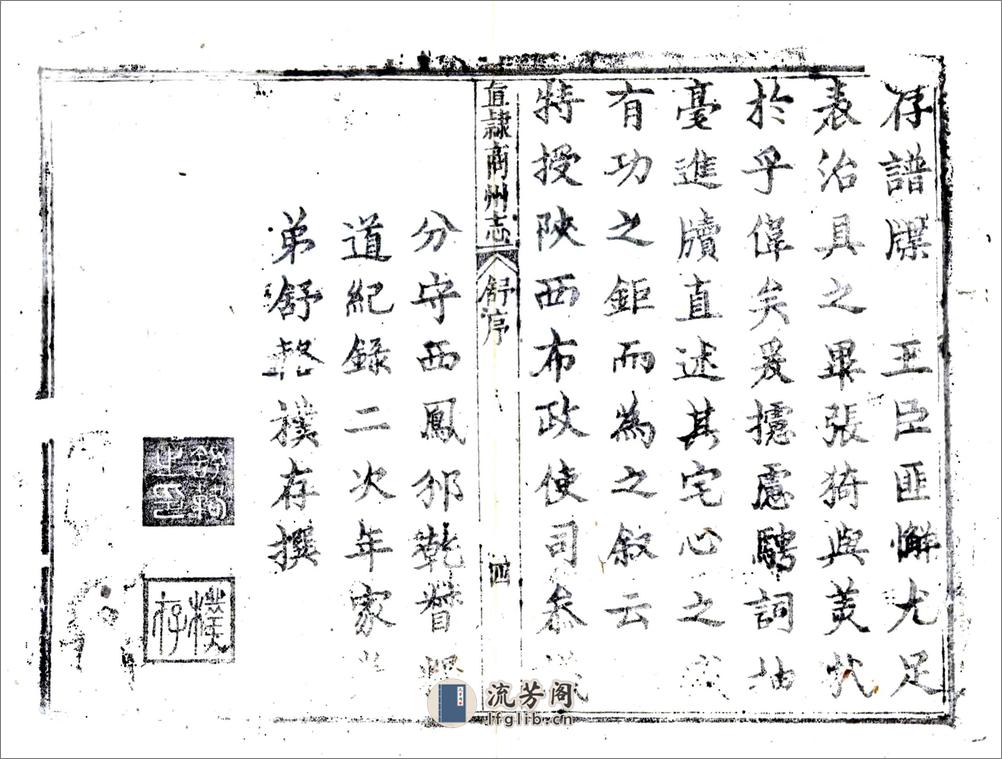 存譜牒 王臣匪懈尤足
表治具之畢張猗與美哉
於乎偉矣爰攄慮騁詞抽
毫進牘直述其宅心之誠
有功之鉅而為之敘云
特授陝西布政使司叅議
直隸商州志 舒序 四
分守西鳳邠乾督糧
道紀錄二次年家
弟舒輅樸存撰
舒輅之印
樸存
流芳阁
lfglib.cn